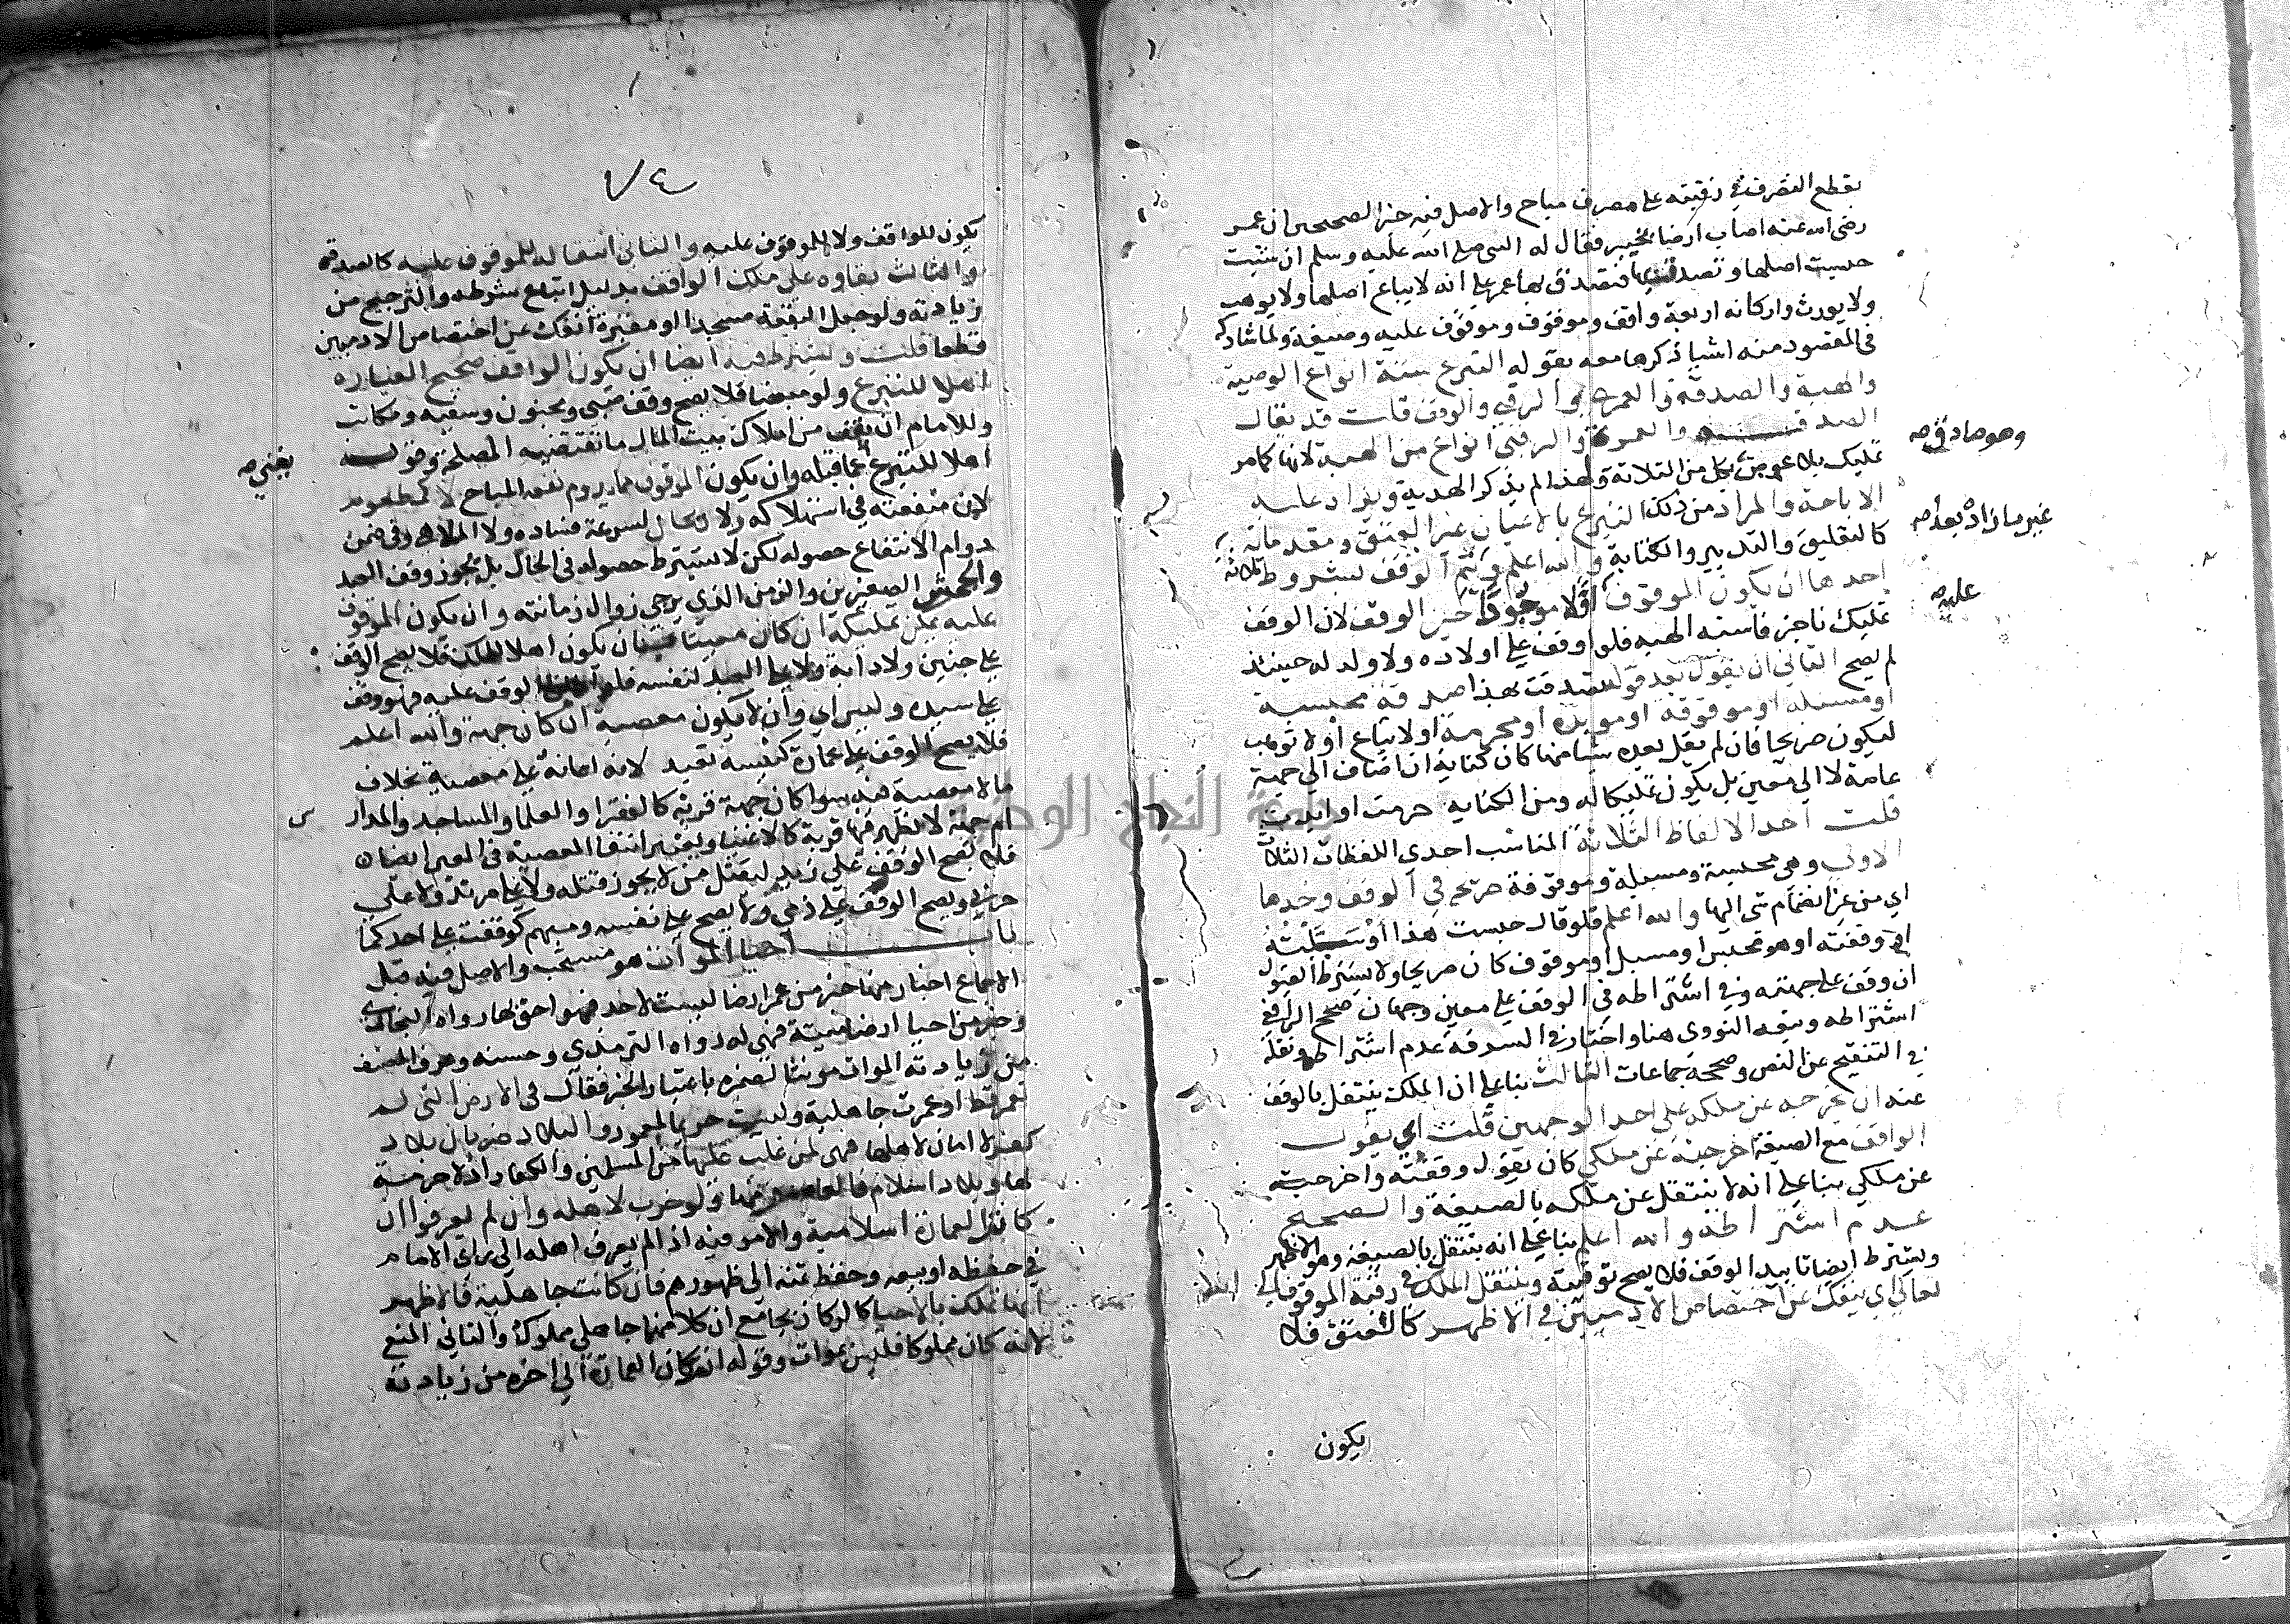 بقطع التصرف في رقبته على مصرف مباح والاصل فيه خبر الصحيحين ان عمر
رضى الله عنه اصاب ارضا بخيبر فقال له النبي صلى الله عليه وسلم ان شئت
حبست اصلها وتصدقت بها فتصدق بها عمر على انه لا يباع اصلها ولا يوهب
ولا يورث واركانه اربعة واقف وموقوف وموقوف عليه وصيغة ولما شاركه
فى المقصود منه اشيا ذكرها معه بقوله التبرع ستة انواع الوصية
والهبة والصدقة والعمرى والرقبى والوقف قلت قد يقال
الصدقة والعمرى والرقبى انواع من الهبة لانها كما مر
وهو صادق صح
تمليك بلا عوض بكل من الثلاثة ولهذا لم يذكر الهدية ويزاد عليه
الاباحة والمراد من ذلك التبرع بالاعيان غير العتق ومقدماته
غير ما زاده بعد صح
كالتعليق والتدبير والكتابة والله اعلم ويتم الوقف بشروط ثلاثة
احدها ان يكون الموقوف اولا موجودا حين الوقف لان الوقف
عليه صح
تمليك ناجز فاشبه الهبة فلو وقف على اولاده ولا ولد له حينئذ
لم يصح الثاني ان يقول بعد قوله تصدقت بهذا صدقة محبسة
او مسبلة او موقوفة او موبدة او محرمة او لا تباع او لا توهب
ليكون صريحا فان لم يقل بعده شيا منها كان كناية ان اضاف الى جهة
عامة لا الى معين بل يكون تمليكا له ومن الكناية حرمت او ابدت
قلت احد الالفاظ الثلاثة المناسب احدى اللفظات الثلاث
الاولى وهي محبسة ومسبلة وموقوفة صريح في الوقف وحدها
اي من غير انضمام شى اليها والله اعلم فلو قال حبست هذا او سبلته
او وقفته او هو محبس او مسبل او موقوف كان صريحا ولا يشترط القبول
ان وقف على جهة وفي اشتراطه في الوقف على معين وجهان صحح الرافعي
اشتراطه وتبعه النووى هنا واختار في السرقة عدم اشتراطه ونقله
في التنقيح عن النص وصححه جماعات الثالث بنا على ان الملك ينتقل بالوقف
عنه ان يخرجه عن ملكه على احد الوجهين قلت اي يقول
الواقف مع الصيغة اخرجته عن ملكي كان يقول وقفته واخرجته
عن ملكي بنا على انه لا ينتقل عن ملكه بالصيغة والصحيح
عدم اشتراطه والله اعلم بنا على انه ينتقل بالصيغة وهو الاظهر
ويشترط ايضا تابيد الوقف فلا يصح توقيته وينتقل الملك في رقبة الموقوف الى الله
تعالى اي ينفك عن اختصاص الادميين في الاظهر كالعتق فلا
يكون
٧٤
يكون للواقف ولا للموقوف عليه والثانى انتقاله للموقوف عليه كالصدقة
والثالث بقاوه على ملك الواقف بدليل اتباع شرطه والترجيح من
زيادته ولو جعل البقعة مسجدا او مقبرة انفك عن اختصاص الادميين
قطعا قلت ويشترط فيه ايضا ان يكون الواقف صحيح العبارة
اهلا للتبرع ولو مبعضا فلا يصح وقف صبي ومجنون وسفيه ومكاتب
وللامام ان يقف من املاك بيت المال ما تقتضيه المصلحة وقوله
يغني صح
اهلا للتبرع عما قبله وان يكون الموقوف مما يدوم نفعه المباح لا كمطعوم
لان منفعته في استهلاكه ولا ريحان لسرعة فساده ولا الملاهى وفى ضمن
دوام الانتفاع حصوله لكن لا يشترط حصوله فى الحال بل يجوز وقف العبد
والجحش الصغيرين والزمن الذي يرجى زوال زمانته وان يكون الموقوف
عليه يمكن تمليكه ان كان معينا بان يكون اهلا للملك فلا يصح الوقف
على جنين ولا دابة ولا على العبد لنفسه فلو اطلق الوقف عليه فهو وقف
على سيده وليس اي وان لا يكون معصية ان كان جهة والله اعلم
فلا يصح الوقف على عمارة كنيسة تعبد لانه اعانة على معصية بخلاف
ما لا معصية فيه سوا كان جهة قربة كالفقرا والعلما والمساجد والمدارس
ام جهة لا تظهر فيها قربة كالاغنيا ويعتبر انتفا المعصية في المعين ايضا
فلا يصح الوقف على زيد ليقتل من لا يجوز قتله ولا على مرتد ولا على
حربي ويصح الوقف على ذمي ولا يصح على نفسه ومبهم كوقفت على احدكما
باب احيا الموات هو مستحب والاصل فيه قبل
الاجماع اخبار منها خبر من عمر ارضا ليست لاحد فهو احق بها رواه البخاري
وخبر من احيا ارضا ميتة فهى له رواه الترمذي وحسنه وعرف المصنف
من زيادته الموات مونثا لضميره باعتبار الخبر فقال فى الارض التى لم
تعمر قط او عمرت جاهلية وليست حريما لمعمور والبلاد ضربان بلاد
كفر لا امان لاهلها فهى لمن غلب عليها من المسلمين والكفار اذ لا حرمة
لها وبلاد اسلام فالمعمور منها ولو خرب لاهله وان لم يعرفوا ان
كانت العمارة اسلامية والامر فيه اذا لم يعرف اهله الى راي الامام
في حفظه او بيعه وحفظ ثمنه الى ظهورهم فان كانت جاهلية فالاظهر
انها تملك بالاحيا كالركاز بجامع ان كلا منهما جاهلي مملوك والثاني المنع
لانه كان مملوكا فليس بموات وقوله ان كان العمارة الى اخره من زيادته